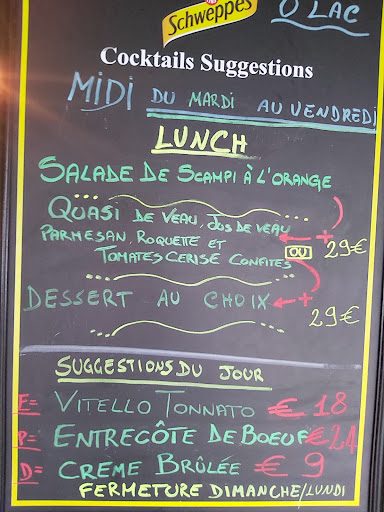 Schweppes
O'LAC
Cocktails Suggestions
MIDI DU MARDI AU VENDREDI
LUNCH
SALADE DE SCAMPI À L'ORANGE
QUASI DE VEAU, JUS DE VEAU
PARMESAN, ROQUETTE ET
TOMATES CERISE CONFITES
+
OU
29€
DESSERT AU CHOIX
+
29€
SUGGESTIONS DU JOUR
E= VITELLO TONNATO € 18
P= ENTRECÔTE DE BOEUF € 24
D= CREME BRÛLÉE € 9
FERMETURE DIMANCHE/LUNDI